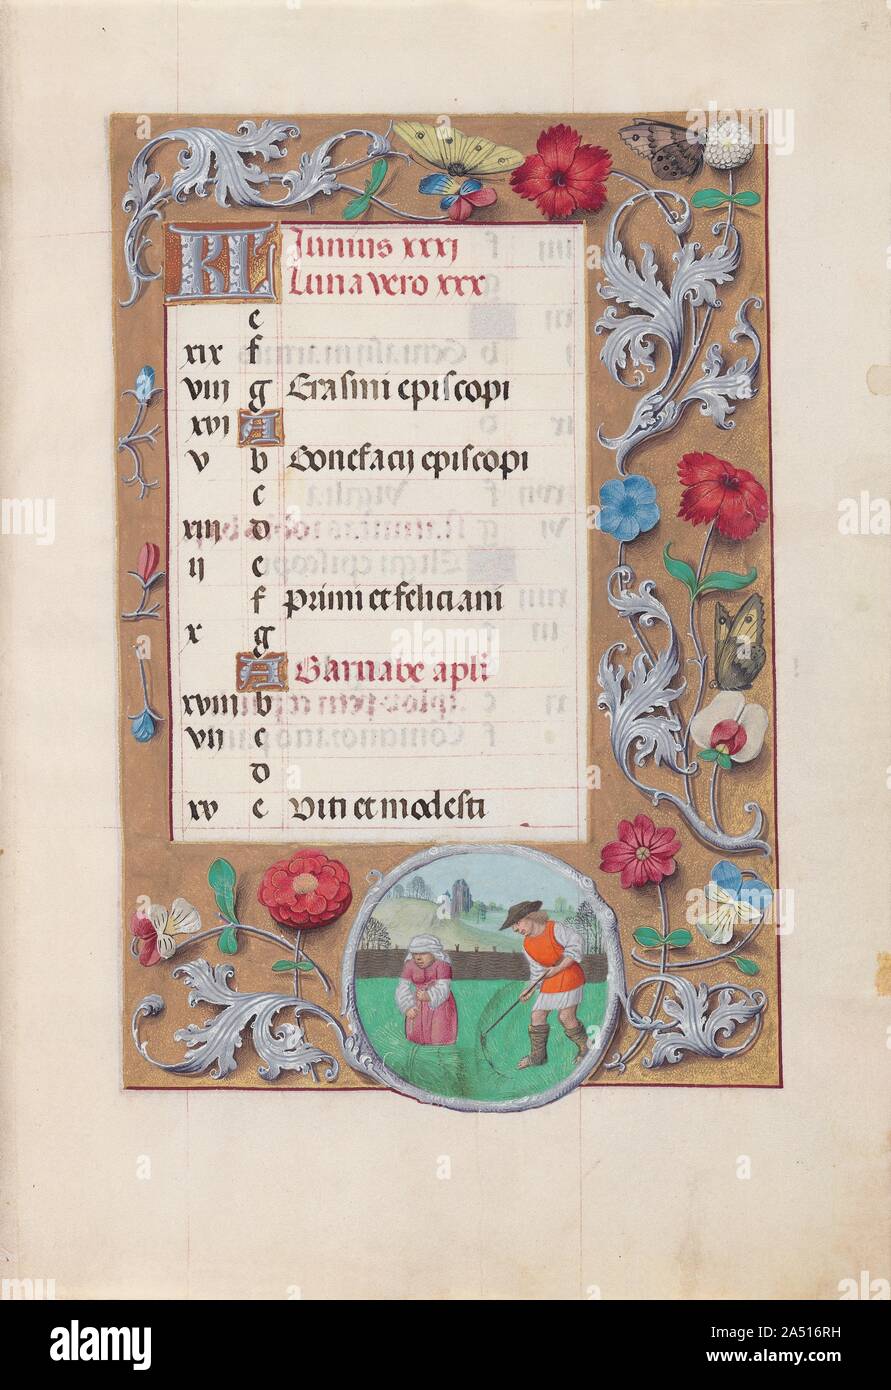 KL Junius xxxj
Luna vero xxx
e
xix f
viij g Erasmi episcopi
xvj A
v b Bonefacij episcopi
c
xiij d
ij e
f primi et feliciani
x g
A Barnabe apli
xviij b
vij c
d
xv e Viti et modesti
alamy
Image ID: 2A516RH
www.alamy.com